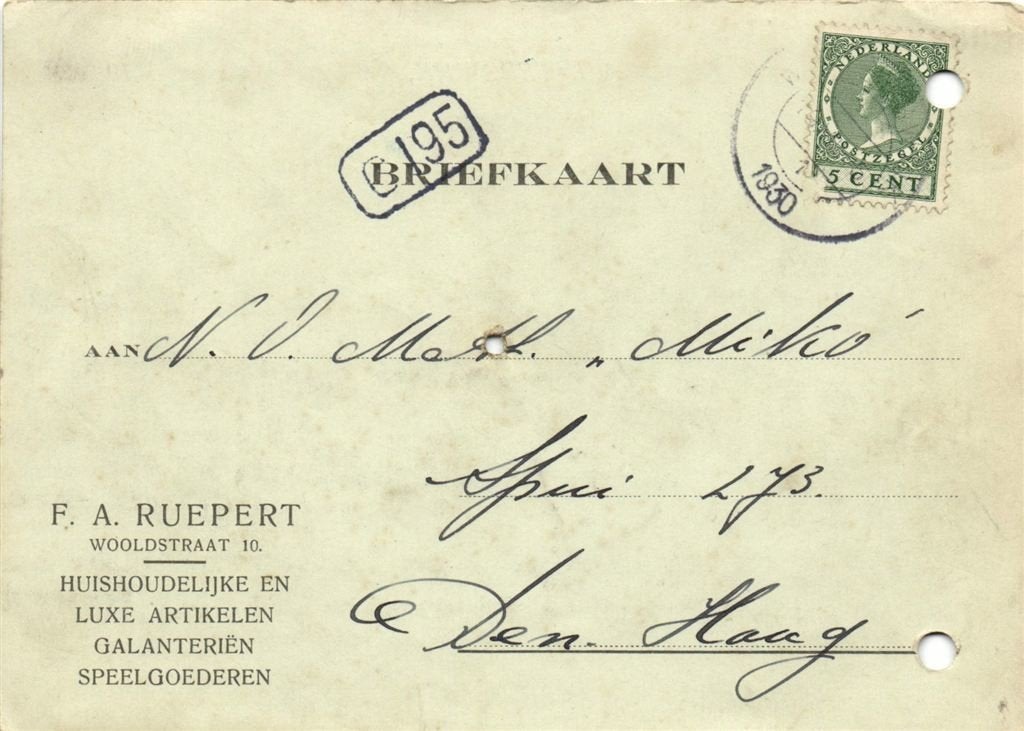 NEDERLAND
POSTZEGEL
5 CENT
1930
195
BRIEFKAART
AAN N. V. Mij. „Miko"
Spui 273.
Den Haag
F. A. RUEPERT
WOOLDSTRAAT 10.
HUISHOUDELIJKE EN
LUXE ARTIKELEN
GALANTERIËN
SPEELGOEDEREN